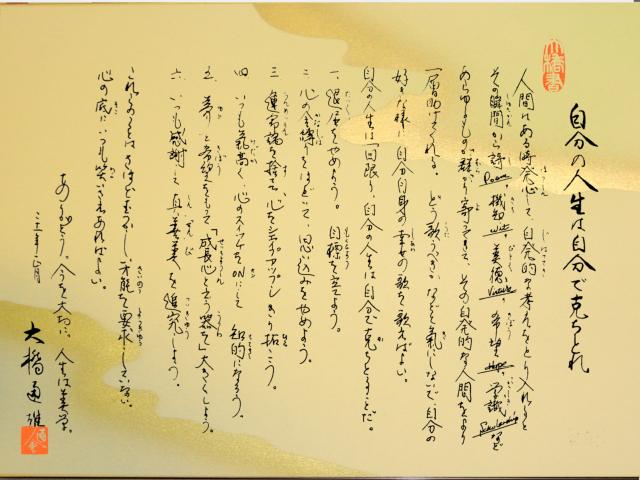 自分の人生は自分で克ちとれ
人間はある時発心して、自発的な考えをとり入れると
その瞬間から詩 Poem、機知 wit、美徳 Virtue、希望 Hope、学識 Scholarship など
あらゆるものが群がり寄ってきて、その自発的な人間をより
一層助けてくれる。どう歌うべきか、などと氣にしないで自分の
好きな様に自分自身の幸せの歌を歌えばよい。
自分の人生は一回限り、自分の人生は自分で克ちとることだ。
一、退屈をやめよう。目標を立てよう。
二、心の金縛りをほどいて、思い込みをやめよう。
三、運命論を捨て、心をシェイプアップしきり拓こう。
四、いつも氣高く、心のスイッチをONにして知的になろう。
五、夢と希望をもって「成長心と云う器を」大きくしよう。
六、いつも感謝して真、善、美を追究しよう。
これらのことはさほどむずかしい才能を要求していない。
心の底にいつも笑いさえあればよい。
ありがとう。今を大切に。人生は美学。
二十一年一月
大橋